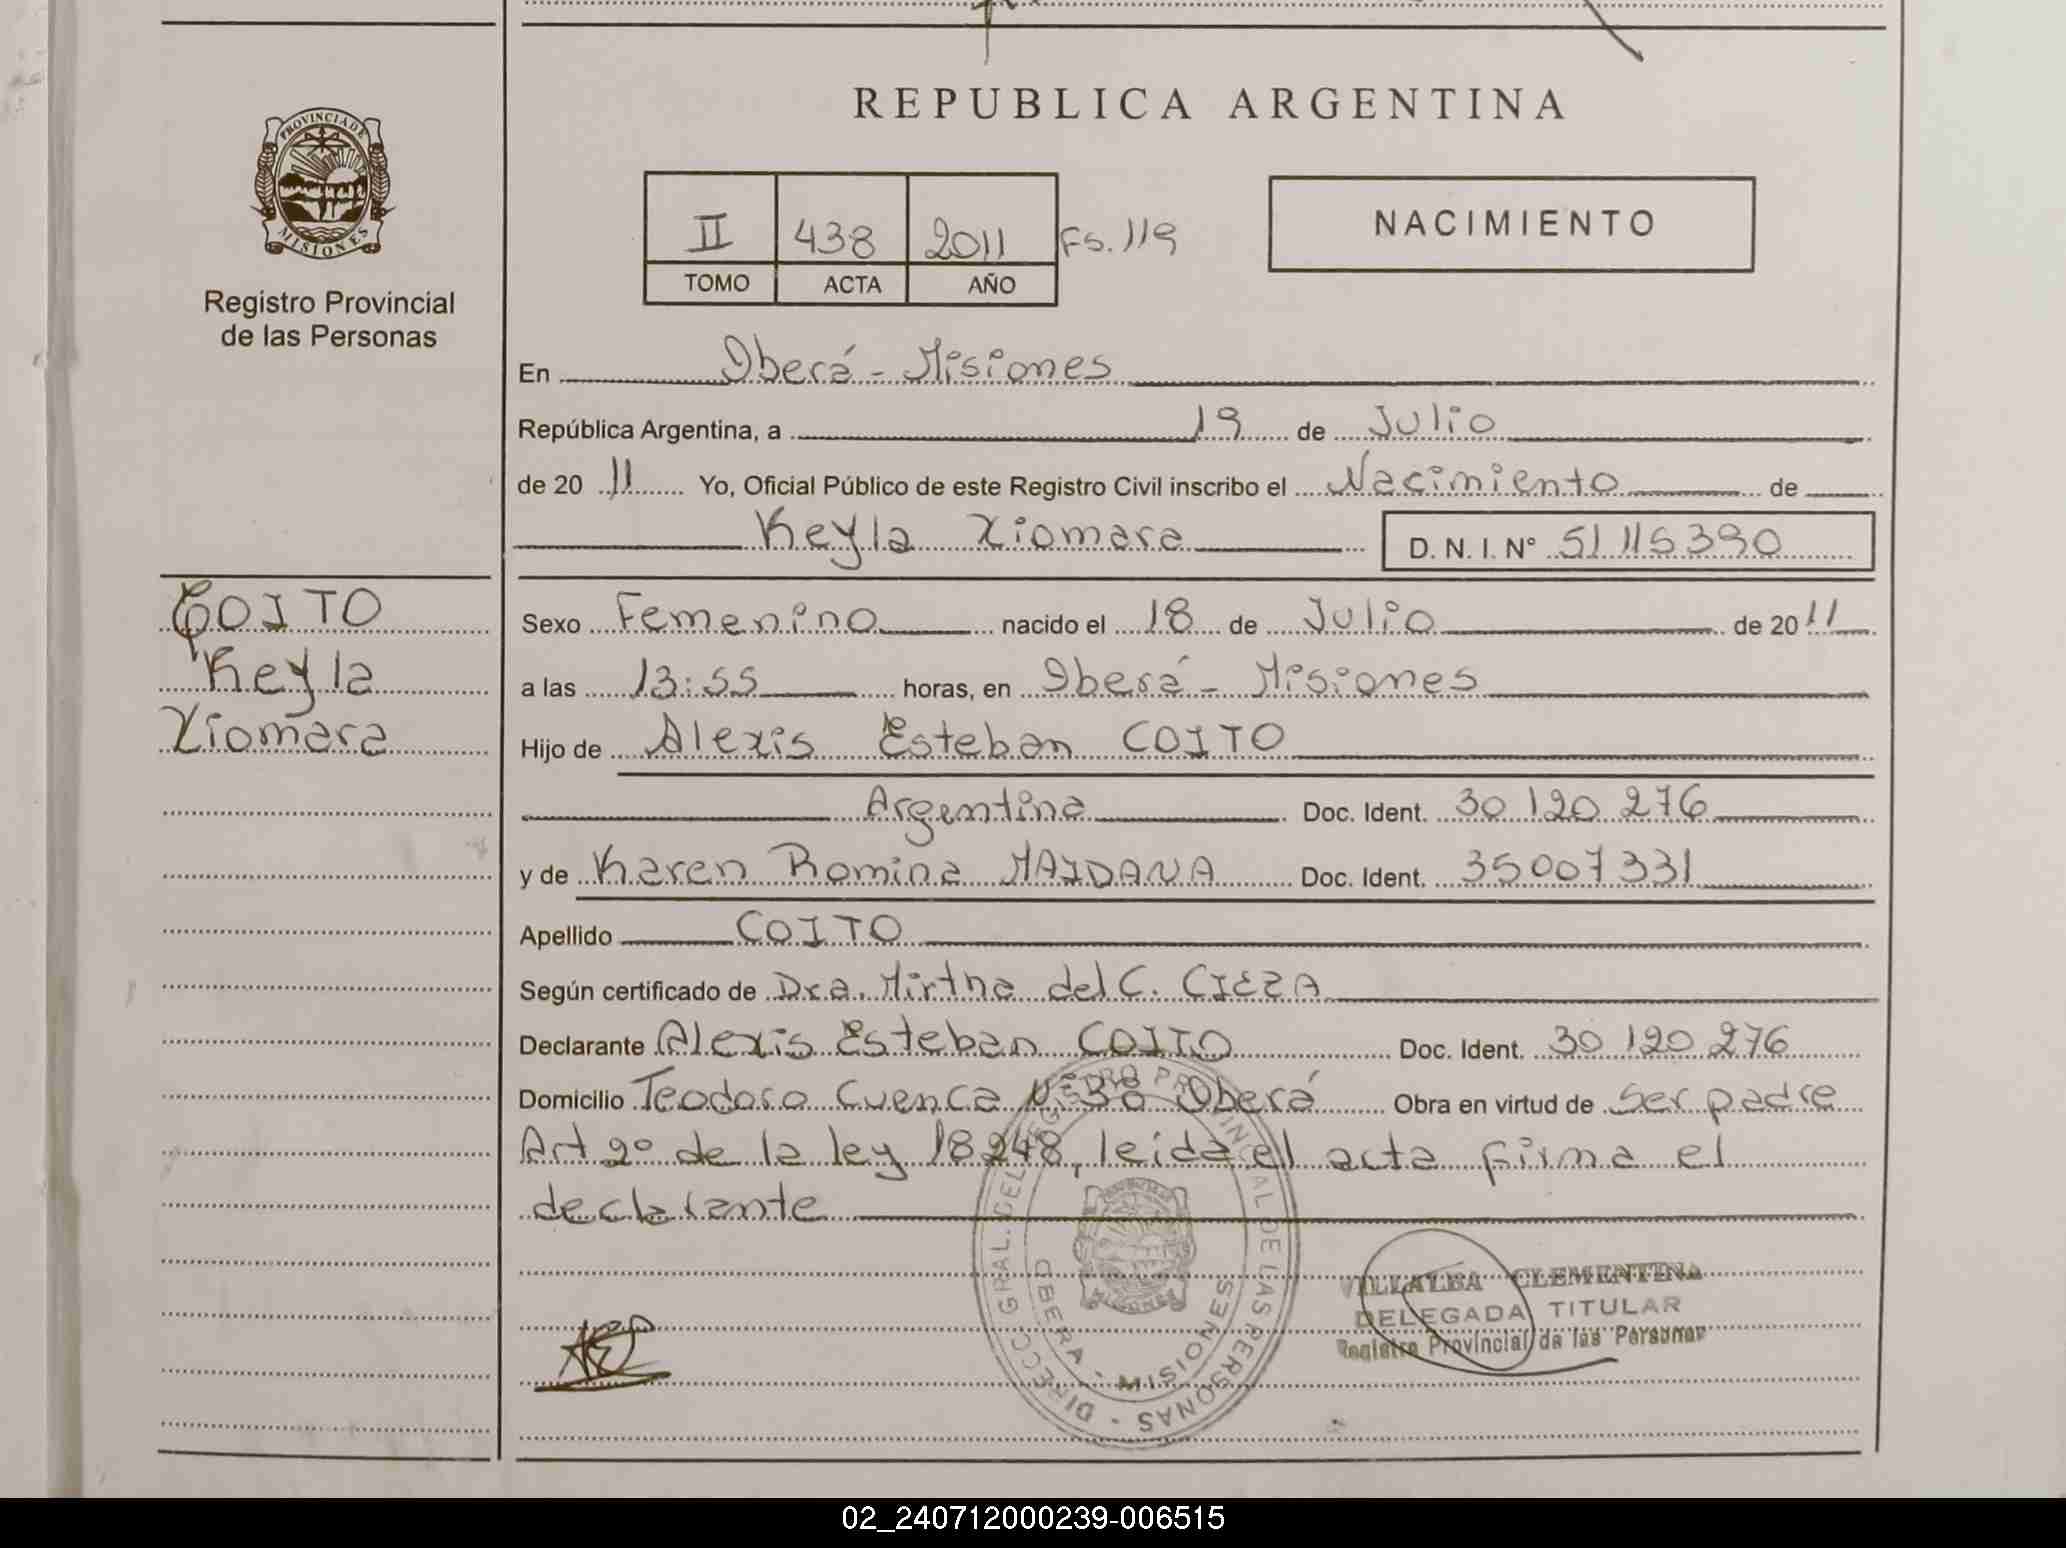 REPUBLICA ARGENTINA
PROVINCIA DE
MISIONES
Registro Provincial
de las Personas
II 438 2011 Fs. 119
TOMO ACTA AÑO
NACIMIENTO
En Oberá - Misiones
República Argentina, a 19 de Julio
de 20 11 Yo, Oficial Público de este Registro Civil inscribo el Nacimiento de
Keyla Xiomara D. N. I. Nº 51115390
COITO
Keyla
Xiomara
Sexo Femenino nacido el 18 de Julio de 20 11
a las 13:55 horas, en Oberá - Misiones
Hijo de Alexis Esteban COITO
Argentina Doc. Ident. 30 120 276
y de Karen Romina MAIDANA Doc. Ident. 35007331
Apellido COITO
Según certificado de Dra. Mirtha del C. CIEZA
Declarante Alexis Esteban COITO Doc. Ident. 30 120 276
Domicilio Teodoro Cuenca Nº 30 Oberá Obra en virtud de ser padre
Art 2º de la ley 18248, leida el acta firma el
declarante
DIRECC GRAL. DEL REGISTRO PROVINCIAL DE LAS PERSONAS -
OBERA - MISIONES
VILLALBA CLEMENTINA
DELEGADA TITULAR
Registro Provincial de las Personas
02_240712000239-006515